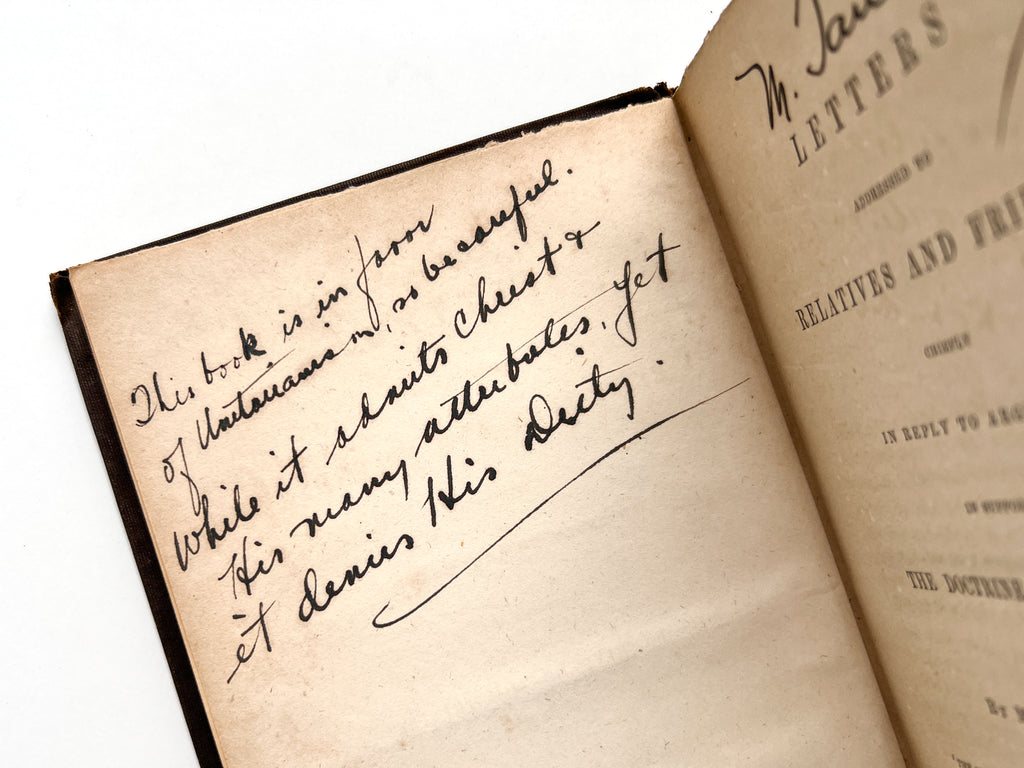 This book is in favor
of Unitarianism, so be careful.
While it admits Christ &
His many atterbutes, yet
it denies His Deity.
M.
LETTERS
ADDRESSED TO
RELATIVES AND
CHIEFLY
IN REPLY TO
THE DOCTRINE
BY